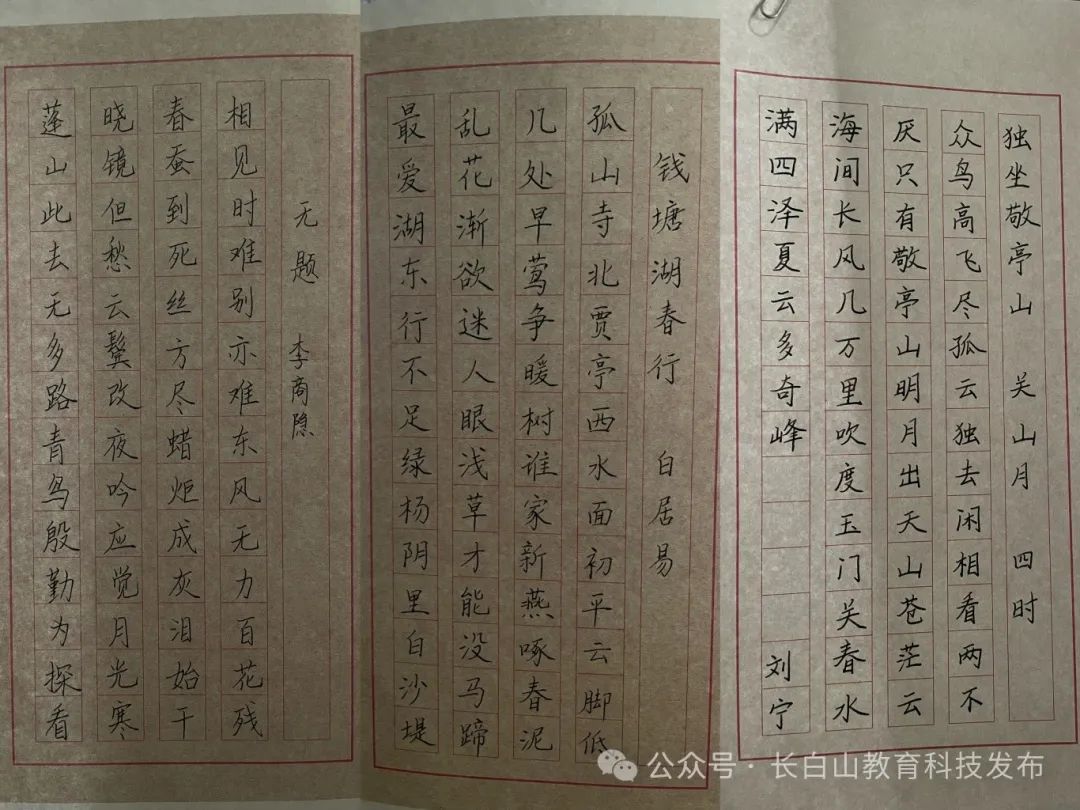 无题 李商隐
相见时难别亦难东风无力百花残
春蚕到死丝方尽蜡炬成灰泪始干
晓镜但愁云鬓改夜吟应觉月光寒
蓬山此去无多路青鸟殷勤为探看
钱塘湖春行 白居易
孤山寺北贾亭西水面初平云脚低
几处早莺争暖树谁家新燕啄春泥
乱花渐欲迷人眼浅草才能没马蹄
最爱湖东行不足绿杨阴里白沙堤
独坐敬亭山 关山月 四时
众鸟高飞尽孤云独去闲相看两不
厌只有敬亭山明月出天山苍茫云
海间长风几万里吹度玉门关春水
满四泽夏云多奇峰 刘宁
公众号·长白山教育科技发布